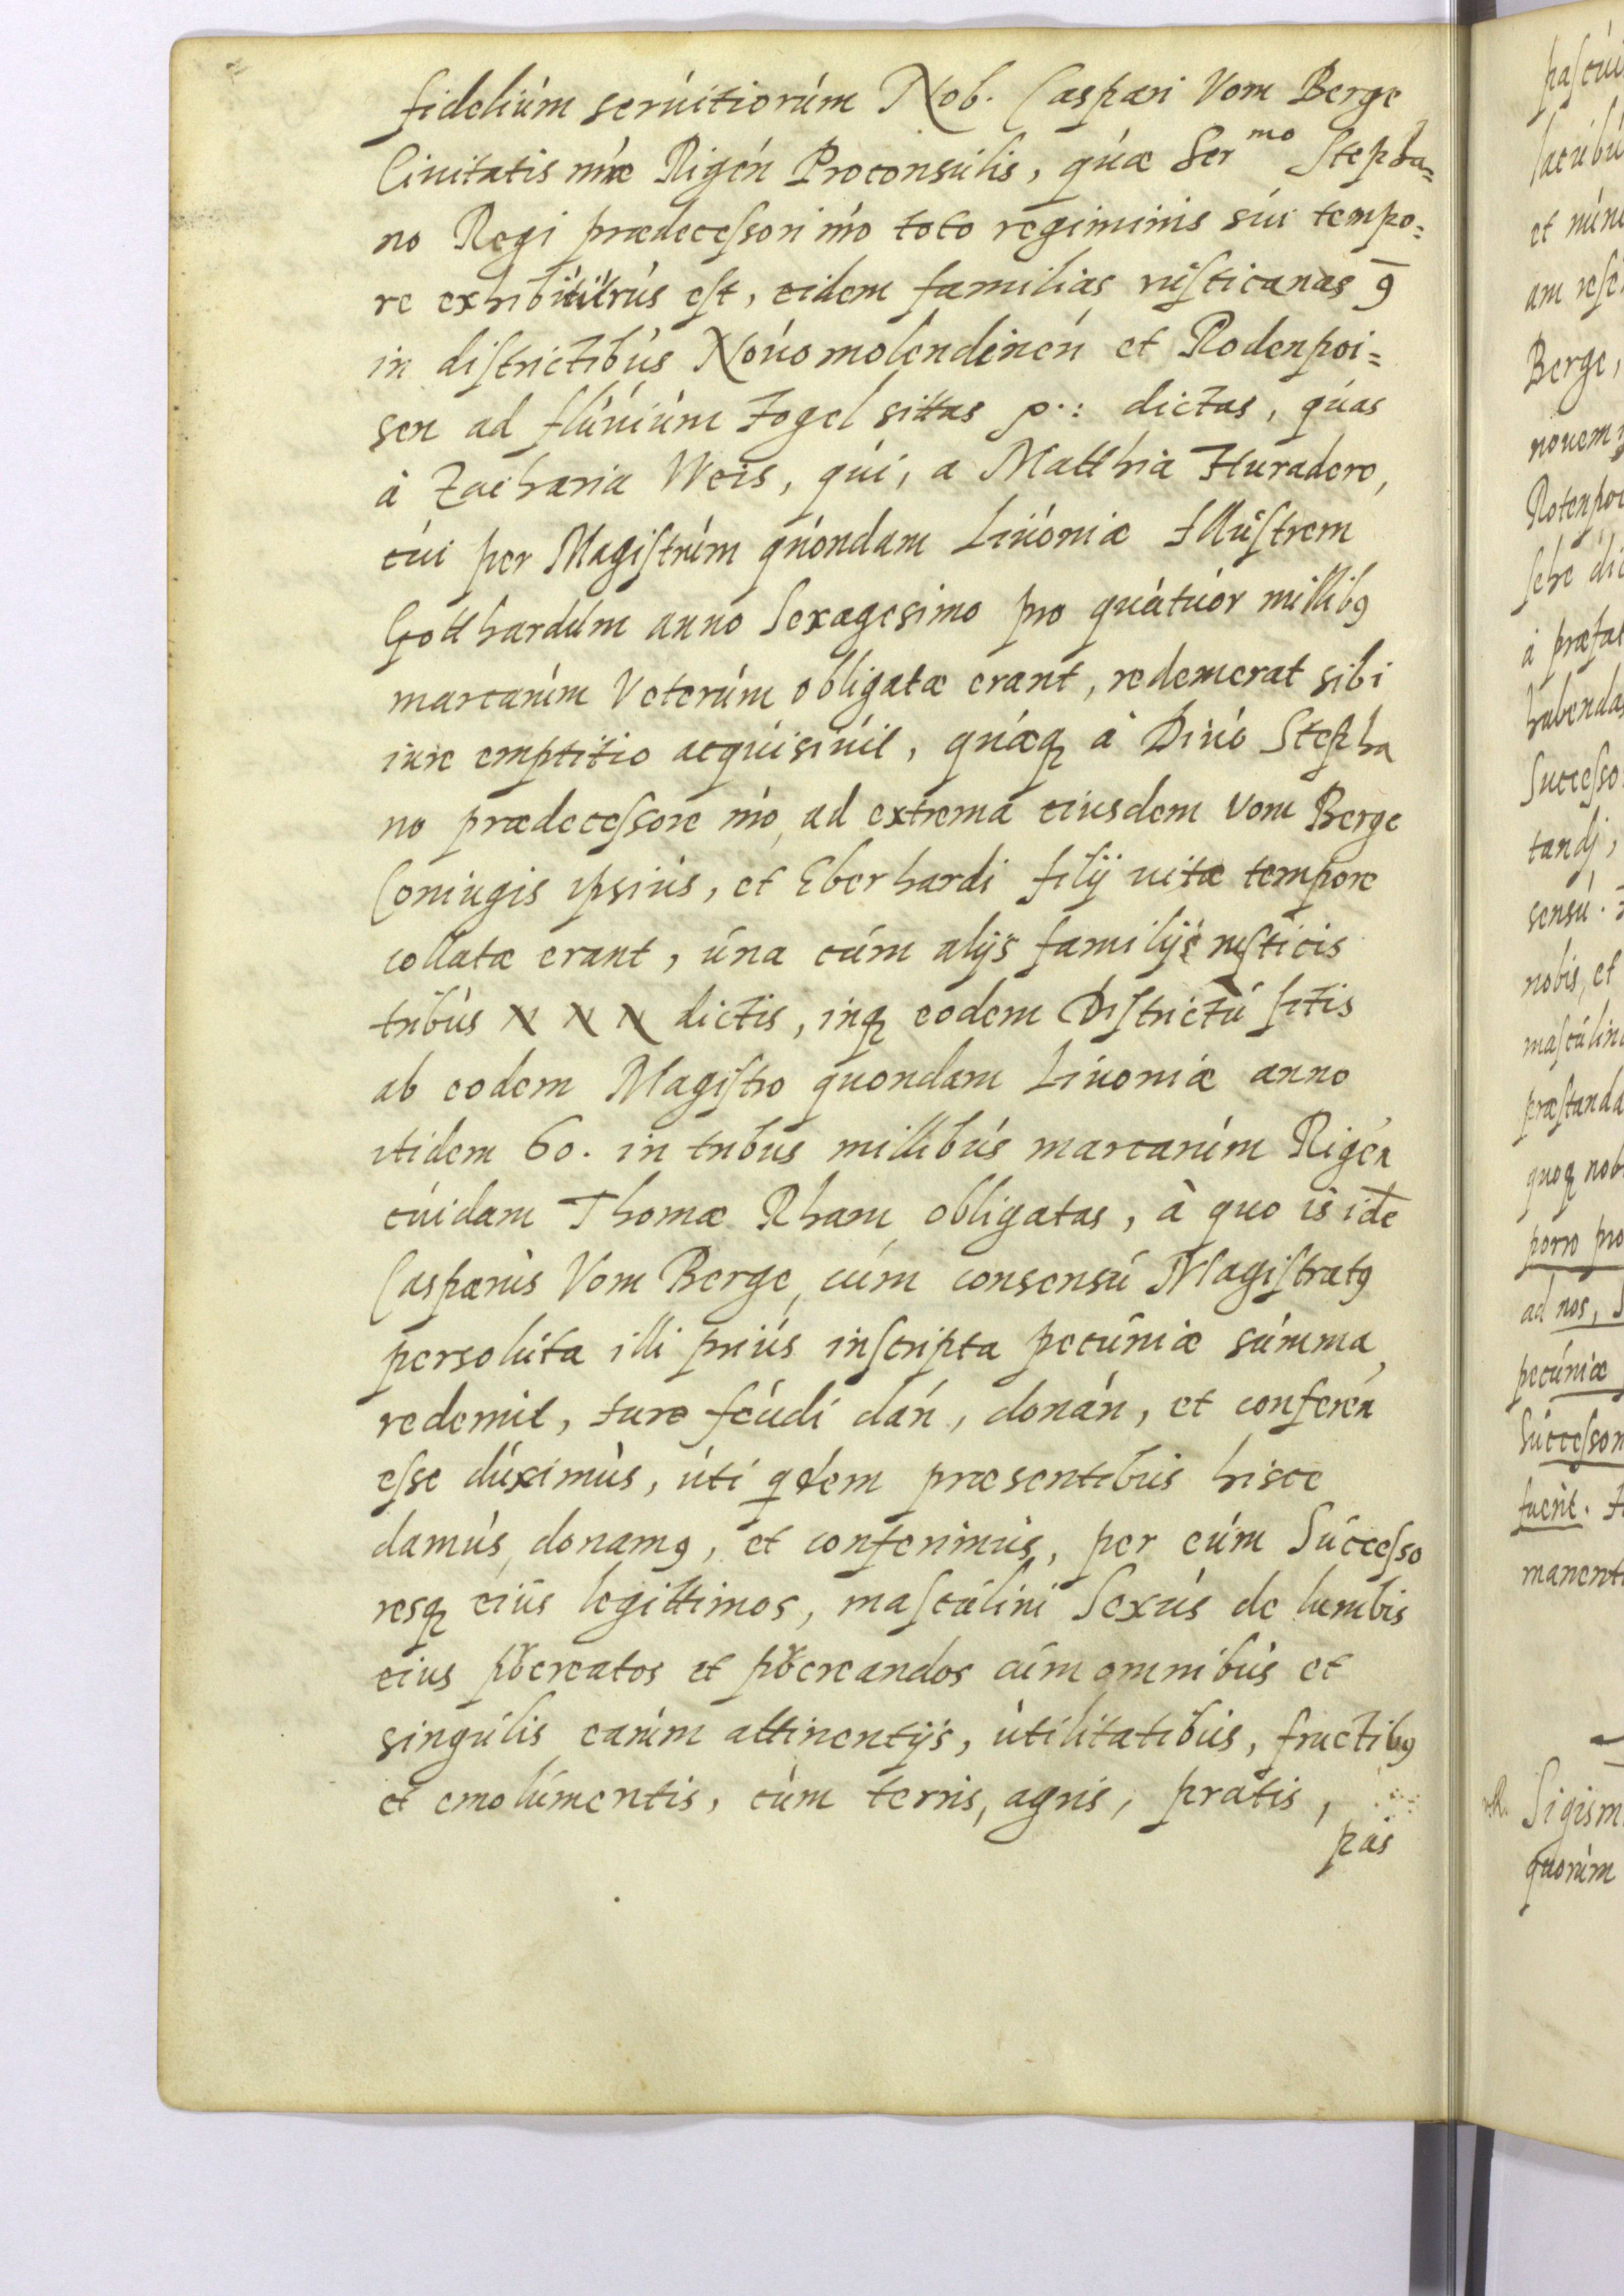 fideliúm serúitiorúm Nob. Caspari Vom Berge
Ciuitatis nr̃æ Rigeń Proconsúlis, qúæ Ser mo Stepha=
no Regi prædeceſsori nr̃o toto regiminis súi tempo=
re exhibitúrús eſt, eidem familias rúſticanas 9
in diſtrictibús Nóúomolendineń et Rodenpoi=
sen ad flúúiúm Jogel sittas p.: dictas, qúas
à Zacharia Weis, qúi, a Matthia Húradero,
cúi per Magiſtrúm qúóndam Liúoniæ Illúſtrem
Gotthardúm anno Sexagesimo pro qúatúor millibꝯ
marcarúm Veterúm obligatæ erant, redemerat sibi
iure emptitio acqúisiúit, qúæqꝫ à Diúo Stepha
no prædeceſsore nr̃o, ad extrema eiusdem Vom Berge
Coniugis ipsiús, et Eberhardi filij uitæ tempore
collatæ erant, úna cúm alijs familijs rúſticis
tribús N N N dictis, inqꝫ eodem Diſtrictú ſitis
ab eodem Magiſtro quondam Liuoniæ anno
itidem 60. in tribus millibús marcarúm Rigeń
cúidam Thomæ Rham obligatas, à quo is idē
Casparús Vom Berge, cúm consensú Magiſtratꝯ
persolúta illi priús inſcripta pecúniæ súmma,
redemit, Iure féúdi dań, donań, et confereń
eſse dúximús, úti qdem præsentibús hisce
damús, donamꝯ, et conferimús, per eúm Súcceſso
resqꝫ eiús legittimos, maſcúlini Sexús de lumbis
eius procreatos et procreandos cúm omnibús et
singúlis earúm attinentijs, útilitatibús, fructibꝯ
et emolúmentis, cúm terris, agris, pratis,
pas
pascúi
lacúbú
et núnc
am rese
Berge,
nouem
Rotenpoi
à præfat
habendas
Succeſso
tandj,
sensú.
nobis, et
maſcúlin
præſtanda
quoqꝫ nob
porro pro
ad nos, S
pecúniæ
Súcceſsor
fúerit. I
manent
Sigism
quorúm